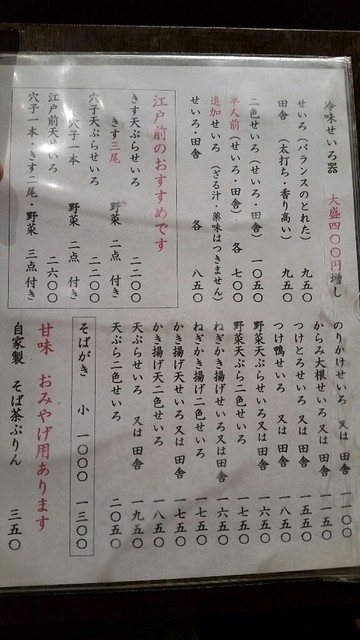 冷味せいろ器 大盛四〇〇円増し
せいろ(バランスのとれた) 九五〇
田舎 (太打ち・香り高い) 九五〇
二色せいろ(せいろ・田舎) 一〇五〇
半人前(せいろ・田舎) 各 七〇〇
追加せいろ(ざる汁・薬味はつきません)
せいろ・田舎 各 八五〇
江戸前のおすすめです
きす天ぷらせいろ 二二〇〇
きす三尾 野菜 二点 付き
穴子天ぷらせいろ 二二〇〇
穴子一本 野菜 二点 付き
江戸前天せいろ 二六〇〇
穴子一本・きす二尾・野菜 三点 付き
のりかけせいろ 又は 田舎 一一〇〇
からみ大根せいろ 又は 田舎 一一五〇
つけとろせいろ 又は 田舎 一五五〇
つけ鴨せいろ 又は 田舎 一八五〇
野菜天ぷらせいろ又は 田舎 一六五〇
野菜天ぷら二色せいろ 一七五〇
ねぎかき揚げせいろ又は田舎 一六五〇
ねぎかき揚げ二色せいろ 一七五〇
かき揚げ天せいろ又は 田舎 一七五〇
かき揚げ天二色せいろ 一八五〇
天ぷらせいろ 又は 田舎 一九五〇
天ぷら二色せいろ 二〇五〇
そばがき 小 一〇〇〇 一三〇〇
甘味 おみやげ用あります
自家製 そば茶ぷりん 三五〇